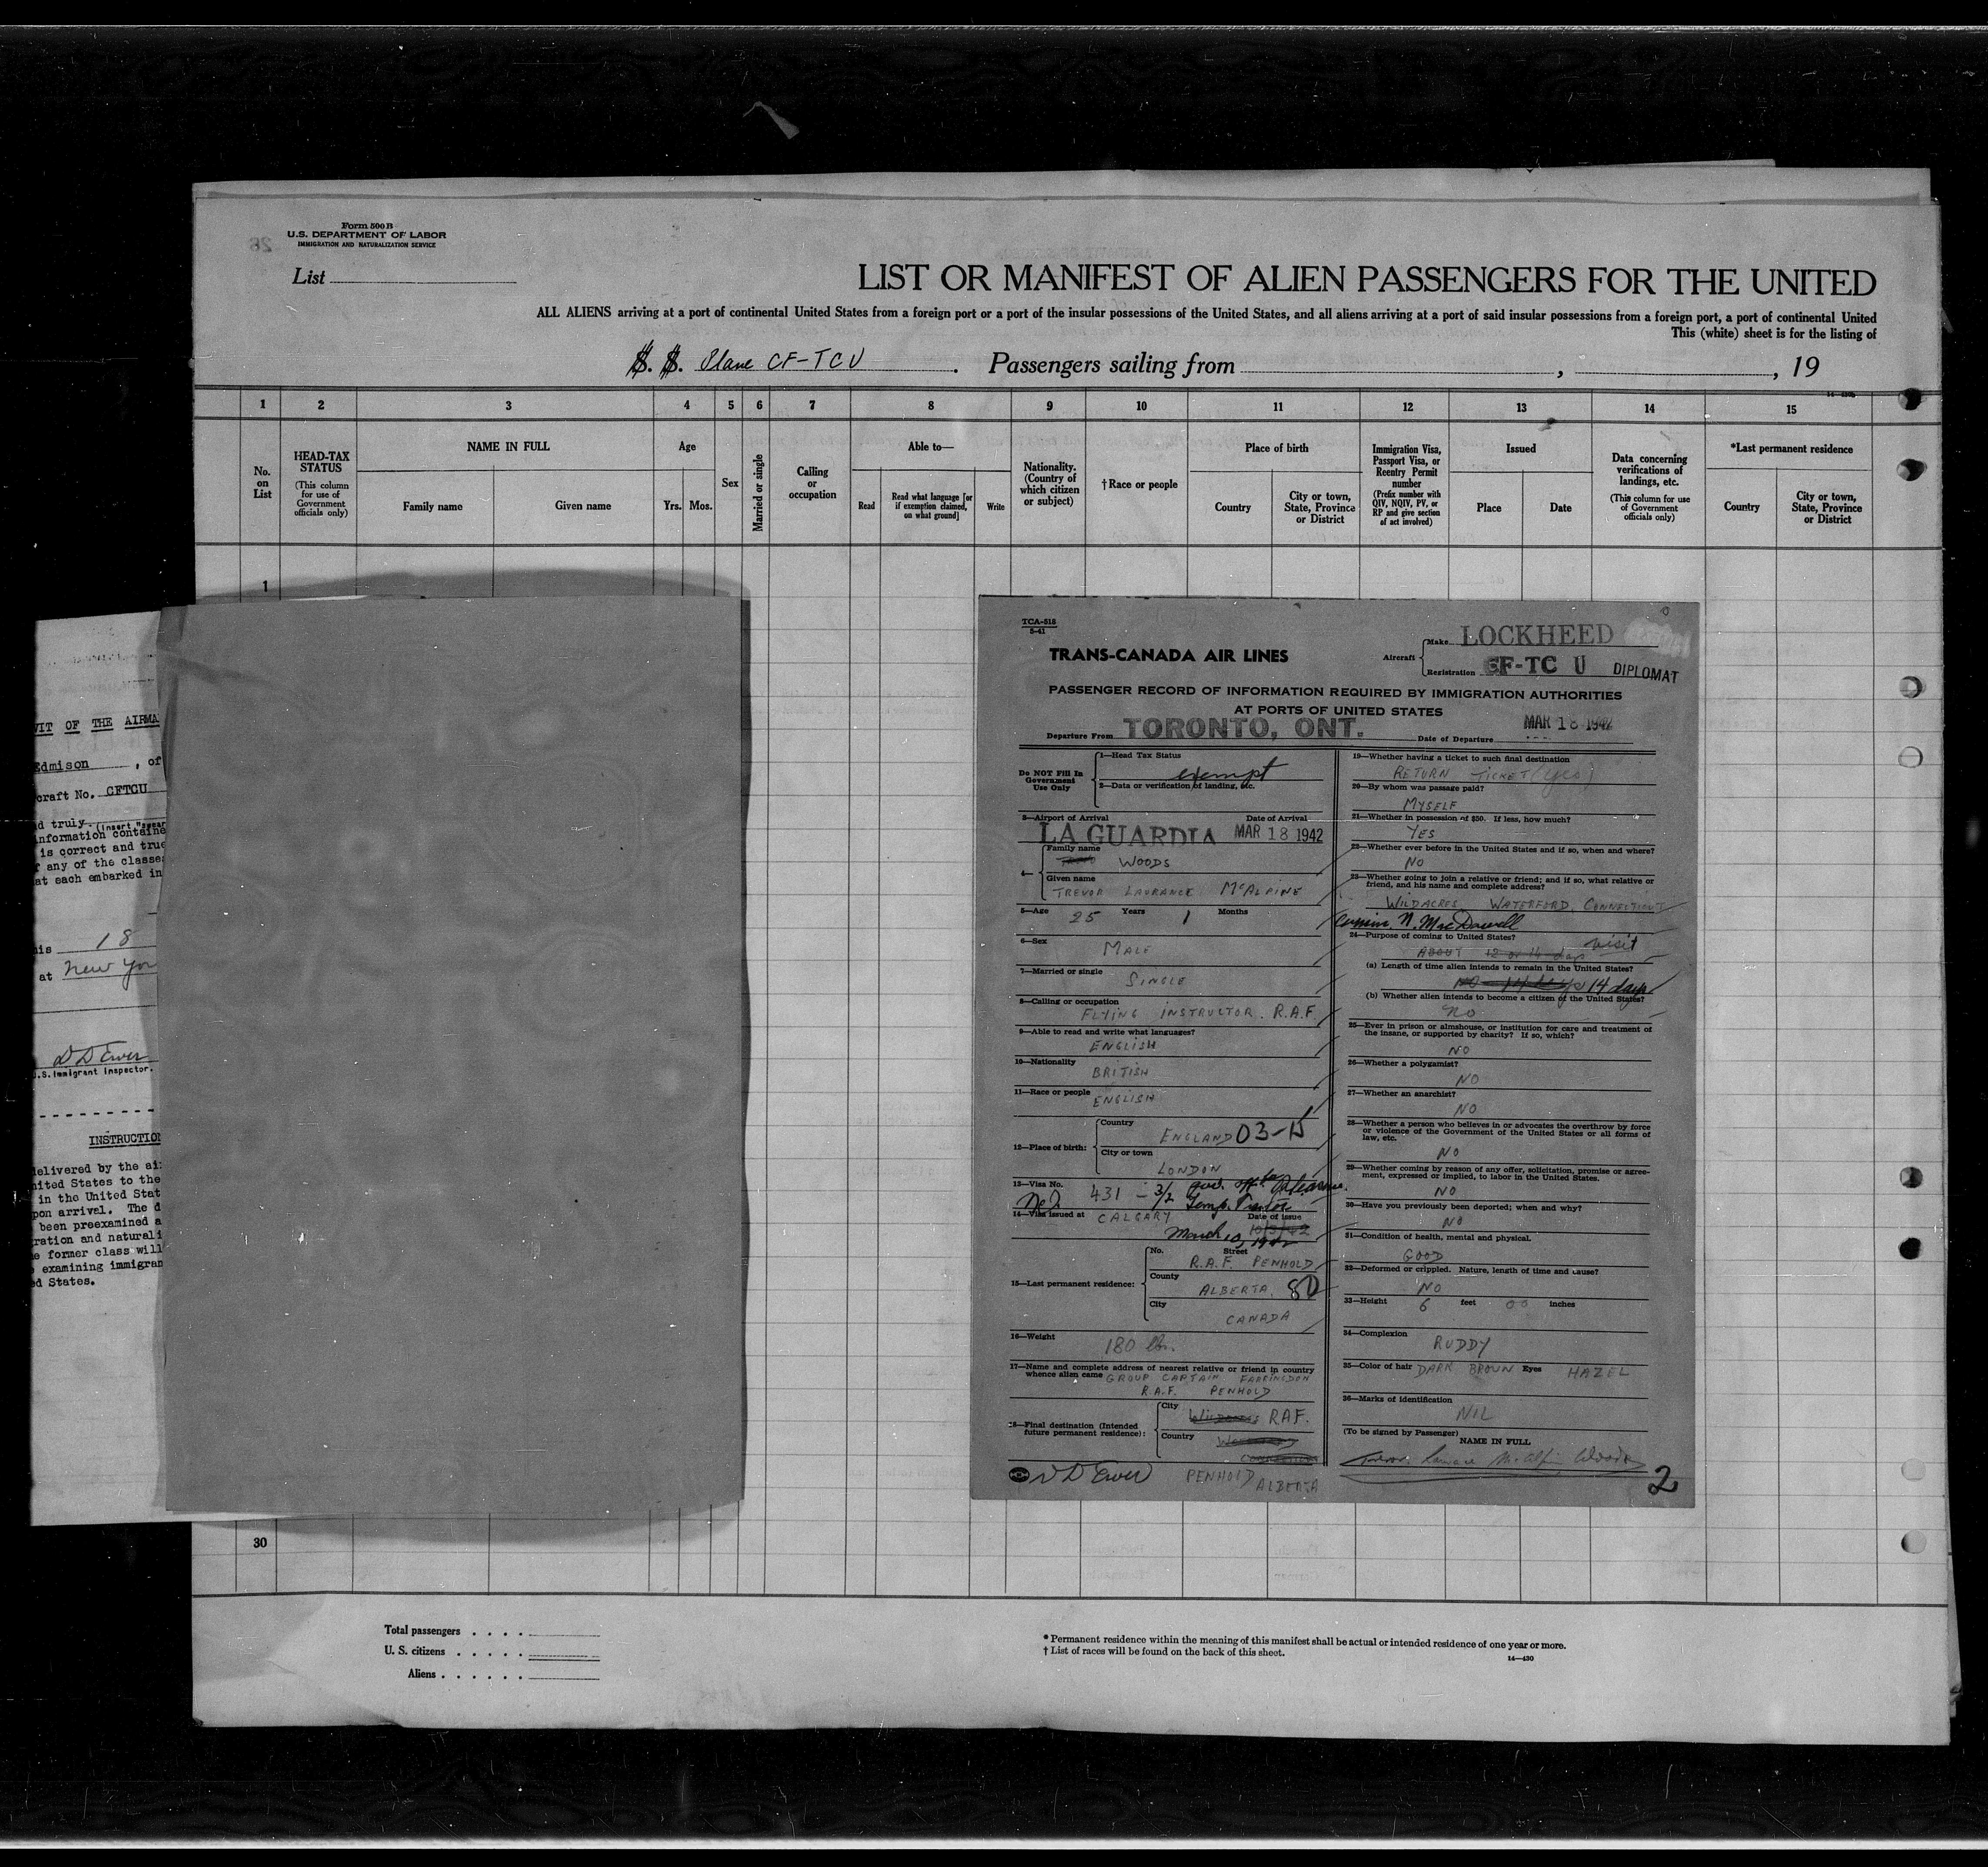 Form 500 B
U.S. DEPARTMENT OF LABOR
IMMIGRATION AND NATURALIZATION SERVICE
26
List
LIST OR MANIFEST OF ALIEN PASSENGERS FOR THE UNITED
ALL ALIENS arriving at a port of continental United States from a foreign port or a port of the insular possessions of the United States, and all aliens arriving at a port of said insular possessions from a foreign port, a port of continental United
This (white) sheet is for the listing of
S. S. Plane CF-TCU. Passengers sailing from , , 19
1 2 3 4 5 6 7 8 9 10 11 12 13 14 15
No. on List
HEAD-TAX STATUS
(This column for use of Government officials only)
NAME IN FULL
Family name
Given name
Age
Yrs. Mos.
Sex
Married or single
Calling or occupation
Able to—
Read
Read what language [or if exemption claimed, on what ground]
Write
Nationality. (Country of which citizen or subject)
†Race or people
Place of birth
Country
City or town, State, Province or District
Immigration Visa, Passport Visa, or Reentry Permit number
(Prefix number with QIV, NQIV, PV, or RP and give section of act involved)
Issued
Place
Date
Data concerning verifications of landings, etc.
(This column for use of Government officials only)
*Last permanent residence
Country
City or town, State, Province or District
1
VIT OF THE AIRMA
Edmison , of
craft No. CFTCU
d truly
(insert "swear
information containe
is correct and true
f any of the classes
at each embarked in
is 18
at New Yor
D D Ewer
U.S. Immigrant Inspector.
INSTRUCTION
delivered by the ai
nited States to the
in the United Stat
pon arrival. The d
been preexamined a
ration and naturali
e former class will
examining immigran
d States.
TCA-518
5-41
TRANS-CANADA AIR LINES
Aircraft
Make LOCKHEED
Registration CF-TC U DIPLOMAT
PASSENGER RECORD OF INFORMATION REQUIRED BY IMMIGRATION AUTHORITIES
AT PORTS OF UNITED STATES
Departure From TORONTO, ONT. Date of Departure MAR 18 1942
Do NOT Fill In Government Use Only
1—Head Tax Status
exempt
2—Data or verification of landing, etc.
3—Airport of Arrival Date of Arrival
LA GUARDIA MAR 18 1942
4—
Family name
WOODS
Given name
TREVOR LAURANCE McALPINE
5—Age 25 Years 1 Months
6—Sex
MALE
7—Married or single
SINGLE
8—Calling or occupation
FLYING INSTRUCTOR. R.A.F.
9—Able to read and write what languages?
ENGLISH
10—Nationality
BRITISH
11—Race or people
ENGLISH
12—Place of birth:
Country
ENGLAND 03-
City or town
LONDON
13—Visa No.
431 - 3/2
Temp. Visitor
14—Visa issued at CALGARY Date of issue
10/3/42
March 10, 1942
15—Last permanent residence:
No. Street
R.A.F. PENHOLD
County
ALBERTA. 80
City
CANADA
16—Weight
180 lbs.
17—Name and complete address of nearest relative or friend in country
whence alien came GROUP CAPTAIN FARRINGDON
R.A.F. PENHOLD
18—Final destination (Intended future permanent residence):
City
RAF.
Country
PENHOLD ALBERTA
D D Ewer
19—Whether having a ticket to such final destination
RETURN TICKET (yes)
20—By whom was passage paid?
MYSELF
21—Whether in possession of $50. If less, how much?
YES
22—Whether ever before in the United States and if so, when and where?
NO
23—Whether going to join a relative or friend; and if so, what relative or
friend, and his name and complete address?
WILDACRES WATERFORD, CONNECTICUT
Cousin. N. MacDowell
24—Purpose of coming to United States?
visit
ABOUT 12 or 14 days
(a) Length of time alien intends to remain in the United States?
14 days
(b) Whether alien intends to become a citizen of the United States?
no
25—Ever in prison or almshouse, or institution for care and treatment of
the insane, or supported by charity? If so, which?
NO
26—Whether a polygamist?
NO
27—Whether an anarchist?
NO
28—Whether a person who believes in or advocates the overthrow by force
or violence of the Government of the United States or all forms of
law, etc.
NO
29—Whether coming by reason of any offer, solicitation, promise or agree-
ment, expressed or implied, to labor in the United States.
NO
30—Have you previously been deported; when and why?
NO
31—Condition of health, mental and physical.
GOOD
32—Deformed or crippled. Nature, length of time and cause?
NO
33—Height 6 feet 00 inches
34—Complexion
RUDDY
35—Color of hair DARK BROWN Eyes HAZEL
36—Marks of identification
NIL
(To be signed by Passenger)
NAME IN FULL
Trevor Laurance McAlpine Woods
2
30
Total passengers . . . .
U. S. citizens . . . . .
Aliens . . . . . .
* Permanent residence within the meaning of this manifest shall be actual or intended residence of one year or more.
† List of races will be found on the back of this sheet.
14—430